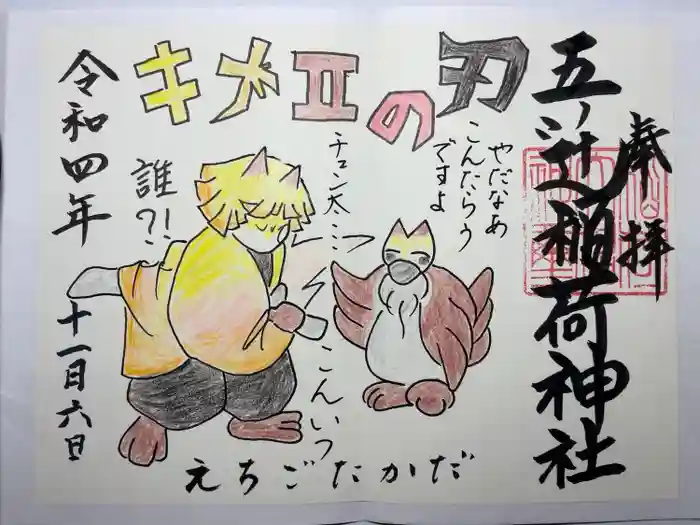 奉拝
五ノ辻稲荷神社
キメエの刃
やだなあ
こんたろう
ですよ
チュン太…
こんいつ
誰?!
令和四年
十一月六日
えちごたかだ